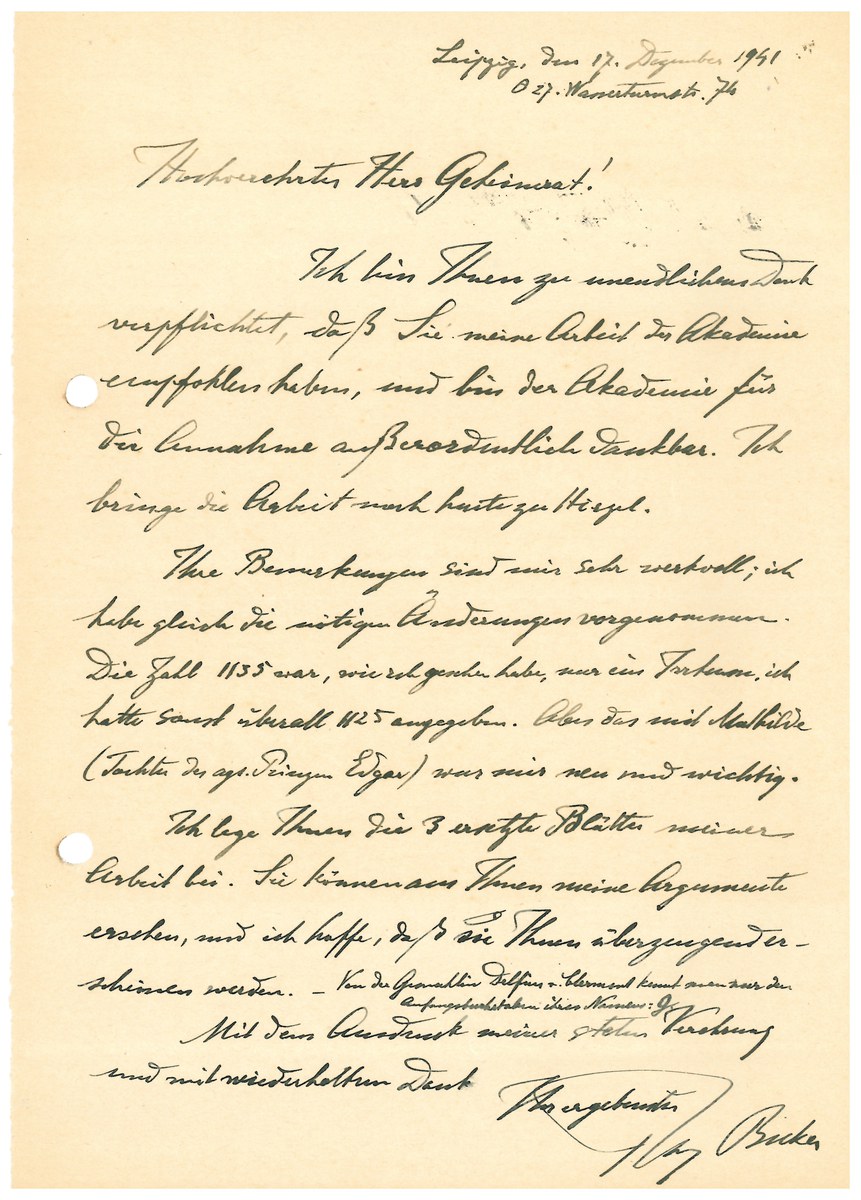 Leipzig, den 17. Dezember 1941
O 27. Wasserturmstr. 76
Hochverehrter Herr Geheimrat!
Ich bin Ihnen zu unendlichem Dank
verpflichtet, daß Sie meine Arbeit der Akademie
empfohlen haben, und bin der Akademie für
die Annahme außerordentlich dankbar. Ich
bringe die Arbeit noch heute zu Hirzel.
Ihre Bemerkungen sind mir sehr wertvoll; ich
habe gleich die nötigen Änderungen vorgenommen.
Die Zahl 1135 war, wie ich gesehen habe, nur ein Irrtum, ich
hatte sonst überall 1125 angegeben. Aber das mit Mathilde
(Tochter des ags. Prinzen Edgar) war mir neu und wichtig.
Ich lege Ihnen die 3 ersetzte Blätter meiner
Arbeit bei. Sie können aus Ihnen meine Argumente
ersehen, und ich hoffe, daß sie Ihnen überzeugend er-
scheinen werden. – Von der Gemahlin Delfins v. Clermont kennt man nur den
Anfangsbuchstaben ihres Namens: G.
Mit dem Ausdruck meiner steten Verehrung
und mit wiederholtem Dank
Ihr ergebenster